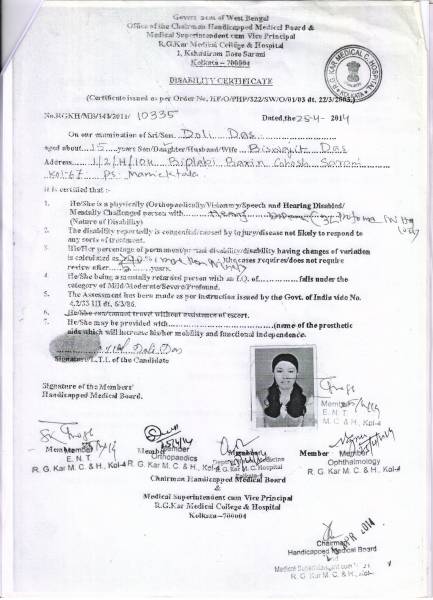 Government of West Bengal
Office of the Chairman Handicapped Medical Board &
Medical Superintendent cum Vice Principal
R.G.Kar Medical College & Hospital
1, Kshudiram Bose Sarani
Kolkata – 700004
DISABILITY CERTIFICATE
(Certificate issued as per Order No. HF/O/PHP/322/SW/O/01/03 dt. 22/3/2003.)
No.RGKH/MB/143/2011/ 10335 Dated, the 25-4- 2014
On our examination of Sri/Smt. Doli Das
aged about 15 years Son/Daughter/Husband/Wife Biswajit Das
Address 1/2/H/10H Biplabi Barin Ghosh Sarani
Kol-67 Ps. Manicktala
It is certified that :-
1. He/She is a physically (Orthopaedically/Visionary/Speech and Hearing Disabled/
Mentally Challenged person with
(Nature of Disability)
2. The disability reportedly is congenital/caused by injury/disease not likely to respond to
any sorts of treatment.
3. His/Her percentage of permanent/partial disability/disability having changes of variation
is calculated as the cases requires/does not require
review after years.
4. He/She being a mentally retarded person with an I.Q. of falls under the
category of Mild/Moderate/Severe/Profound.
5. The Assessment has been made as per instruction issued by the Govt. of India vide No.
4.2/83 III dt. 6/8/86.
6. He/She can/cannot travel without assistance of escort.
7. He/She may be provided with (name of the prosthetic
aids which will increase his/her mobility and functional independence.
Doli Das
Signature/L.T.I. of the Candidate
Signature of the Members'
Handicapped Medical Board.
Member
E. N. T.
M. C. & H., Kol-4
Member Member Member Member
E. N. T. Orthopaedics Medicine Ophthalmology
R. G. Kar M. C. & H., Kol-4 R. G. Kar M. C. & H., Kol-4 R. G. Kar M. C. & H., Kol-4
Chairman Handicapped Medical Board
&
Medical Superintendent cum Vice Principal
R.G.Kar Medical College & Hospital
Kolkata – 700004
APR 2014
Chairman
Handicapped Medical Board
&
Medical Superintendent cum
R. G. Kar M. C. & H., Kol-4